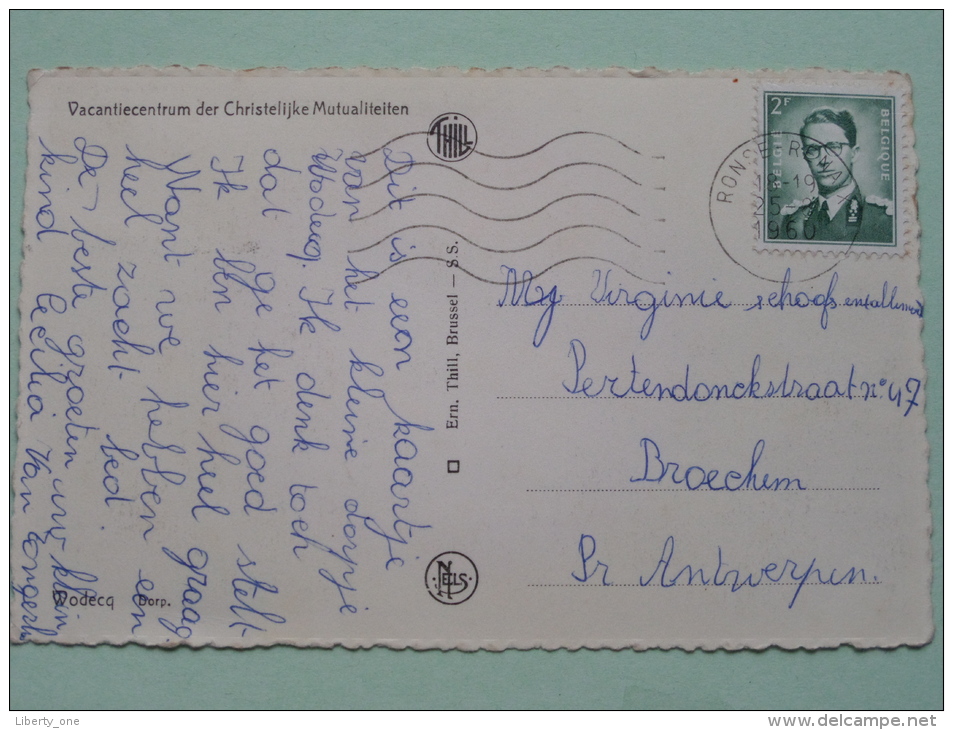 Vacantiecentrum der Christelijke Mutualiteiten
THILL
2F
BELGIE BELGIQUE
RONSE-ROWA
18-19
25
1960
Dit is een kaartje
van het kleine dorpje
Wodecq. Ik denk toch
dat ge het goed stelt
Ik ben hier heel graag
Want we hebben een
heel zacht bed.
De beste groeten uw klein
kind Cecilia Van
Ern. Thill, Brussel — S.S.
NELS
Wodecq Dorp.
Mej Virginie schoofs
Pertendonckstraat n° 47
Broechem
Pr Antwerpen.
Liberty_one
www.delcampe.net